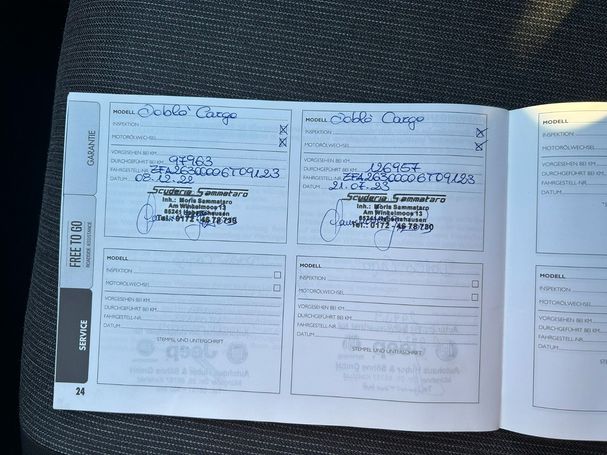 GARANTIE
FREE TO GO
ROADSIDE ASSISTANCE
SERVICE
24
MODELL Doblò Cargo
INSPEKTION
MOTORÖLWECHSEL
VORGESEHEN BEI KM
DURCHGEFÜHRT BEI KM 97963
FAHRGESTELL-NR. ZFA26300006T09123
DATUM 08.12.22
Scuderia Sammataro
Inh.: Moris Sammataro
Am Winkelmoop 13
85241 Hebertshausen
Tel.: 0172 - 46 78 730
MODELL Doblò Cargo
INSPEKTION
MOTORÖLWECHSEL
VORGESEHEN BEI KM
DURCHGEFÜHRT BEI KM 126957
FAHRGESTELL-NR. ZFA26300006T09123
DATUM 21.07.23
Scuderia Sammataro
Inh.: Moris Sammataro
Am Winkelmoop 13
85241 Hebertshausen
Tel.: 0172 - 46 78 730
MODELL
INSPEKTION
MOTORÖLWECHSEL
VORGESEHEN BEI KM
DURCHGEFÜHRT BEI KM
FAHRGESTELL-NR.
DATUM
STEMPEL UND UNTERSCHRIFT
MODELL
INSPEKTION
MOTORÖLWECHSEL
VORGESEHEN BEI KM
DURCHGEFÜHRT BEI KM
FAHRGESTELL-NR.
DATUM
STEMPEL UND UNTERSCHRIFT
MODELL
INSPEKTION
MOTORÖLWECHSEL
VORGESEHEN BEI KM
DURCHGEFÜHRT BEI KM
FAHRGESTELL-NR.
DATUM
MODELL
INSPEKTION
MOTORÖLWECHSEL
VORGESEHEN BEI KM
DURCHGEFÜHRT BEI KM
FAHRGESTELL-NR.
DATUM